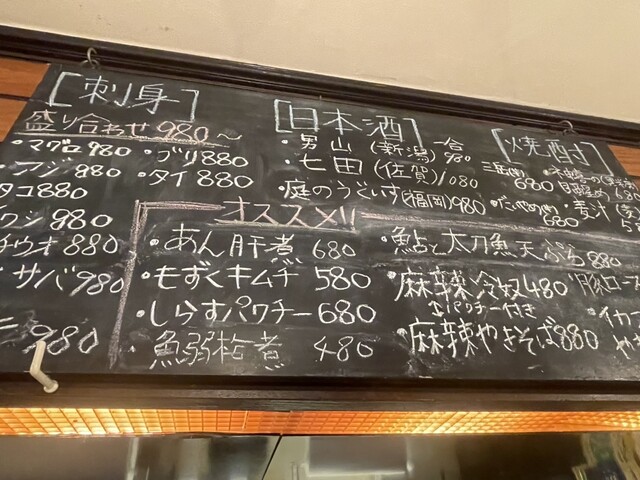 [刺身]
盛り合わせ 980〜
・マグロ 980 ・ブリ 880
アジ 980 ・タイ 880
タコ 880
ワシ 980
チウオ 880
サバ 980
980
[日本酒]
・男山(新潟)一合 980
・七田(佐賀)1080
・庭のうぐいす(福岡)980
[焼酎]
680
680
・麦汁
オススメ!!
・あん肝煮 680
・もずくキムチ 580
・しらすパクチー 680
・魚 煮 480
・鮎と太刀魚天ぷら 880
・麻辣冷奴 480
パクチー付き
・麻辣やきそば 880
・イカ